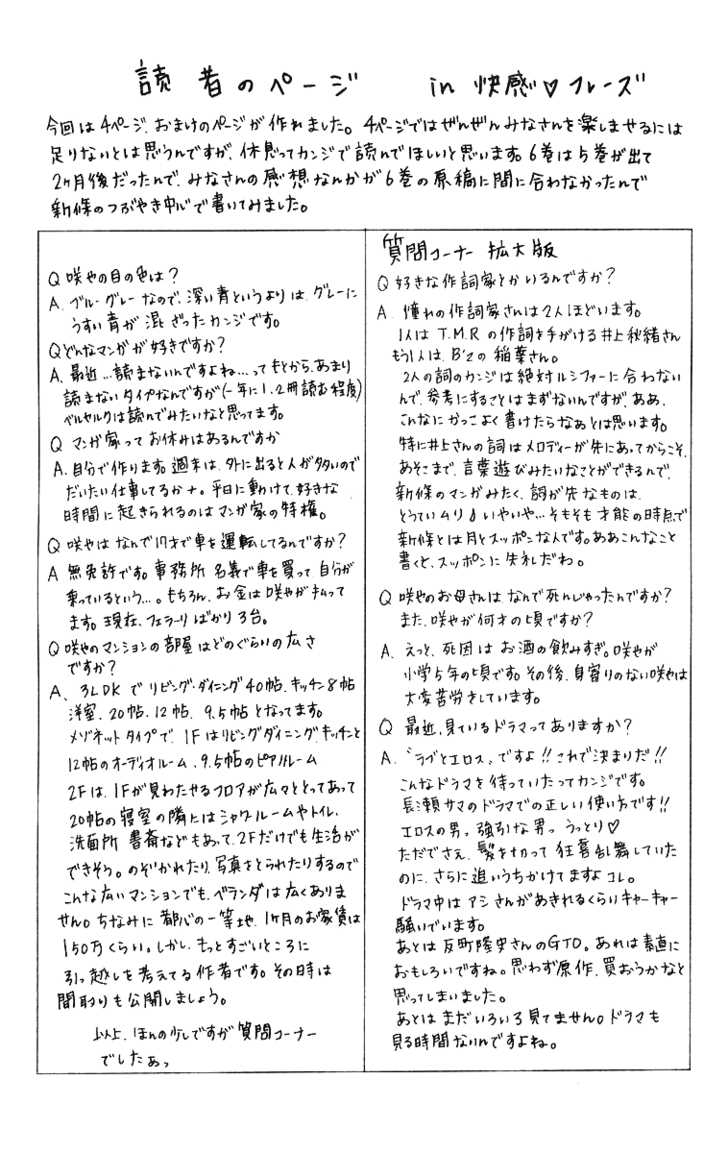 読者のページ in 快感♡フレーズ
今回は4ページ、おまけのページが作れました。4ページではぜんぜんみなさんを楽しませるには
足りないとは思うんですが、休憩ってカンジで読んでほしいと思います。6巻は5巻が出て
2ヶ月後だったんで、みなさんの感想なんかが6巻の原稿に間に合わなかったんで
新條のつぶやき中心で書いてみました。
Q 咲也の目の色は?
A. ブルーグレーなので、深い青というよりは、グレーに
うすい青が混ざったカンジです。
Qどんなマンガが好きですか?
A. 最近…読まないんですよね…ってもとから、あまり
読まないタイプなんですが(一年に1、2冊読む程度)
ベルセルクは読んでみたいなと思ってます。
Q マンガ家ってお休みはあるんですか
A. 自分で作ります。週末は、外に出ると人が多いので
だいたい仕事してるかナ。平日に動けて、好きな
時間に起きられるのはマンガ家の特権。
Q 咲也はなんで17才で車を運転してるんですか?
A 無免許です。事務所名義で車を買って自分が
乗っているという…。もちろん、お金は咲也が払って
ます。現在、フェラーリばかり3台。
Q 咲也のマンションの部屋はどのぐらいの広さ
ですか?
A、3LDKでリビング・ダイニング40帖、キッチン8帖
洋室、20帖、12帖、9.5帖となってます。
メゾネットタイプで、1Fはリビングダイニング、キッチンと
12帖のオーディオルーム、9.5帖のピアノルーム
2Fは、1Fが見わたせるフロアが広々ととってあって
20帖の寝室の隣にはシャワールームやトイレ、
洗面所 書斎などもあって、2Fだけでも生活が
できそう。のぞかれたり、写真をとられたりするので
こんな広いマンションでも、ベランダは広くありま
せん。ちなみに都心の一等地、1ヶ月のお家賃は
150万くらい。しかし、もっとすごいところに
引っ越しを考えてる作者です。その時は
間取りも公開しましょう。
以上、ほんの少しですが質問コーナー
でしたぁっ
質問コーナー 拡大版
Q 好きな作詞家とかいるんですか?
A. 憧れの作詞家さんは2人ほどいます。
1人はT.M.Rの作詞を手がける井上秋緒さん
もう1人は、B'zの稲葉さん。
2人の詞のカンジは絶対ルシファーに合わない
んで、参考にすることはまずないんですが、ああ、
こんなにかっこよく書けたらなぁとは思います。
特に井上さんの詞はメロディーが先にあってからこそ、
あそこまで、言葉遊びみたいなことができるんで、
新條のマンガみたく、詞が先なものは、
とうていムリ♪いやいや…そもそも才能の時点で
新條とは月とスッポンな人です。ああこんなこと
書くと、スッポンに失礼だわ。
Q 咲也のお母さんはなんで死んじゃったんですか?
また、咲也が何才の頃ですか?
A. えっと、死因はお酒の飲みすぎ。咲也が
小学5年の頃です。その後、身寄りのない咲也は
大変苦労をしています。
Q 最近、見ているドラマってありますか?
A. "ラブとエロス"ですよ!!これで決まりだ!!
こんなドラマを待っていたってカンジです。
長瀬サマのドラマでの正しい使い方です!!
エロスの男。強引な男っ うっとり♡
ただでさえ、髪を切って狂喜乱舞していた
のに、さらに追いうちかけてますよコレ。
ドラマ中はアシさんがあきれるくらいキャーキャー
騒いでいます。
あとは反町隆史さんのGTO。あれは素直に
おもしろいですね。思わず原作、買おうかなと
思ってしまいました。
あとはまだいろいろ見てません。ドラマも
見る時間ないんですよね。